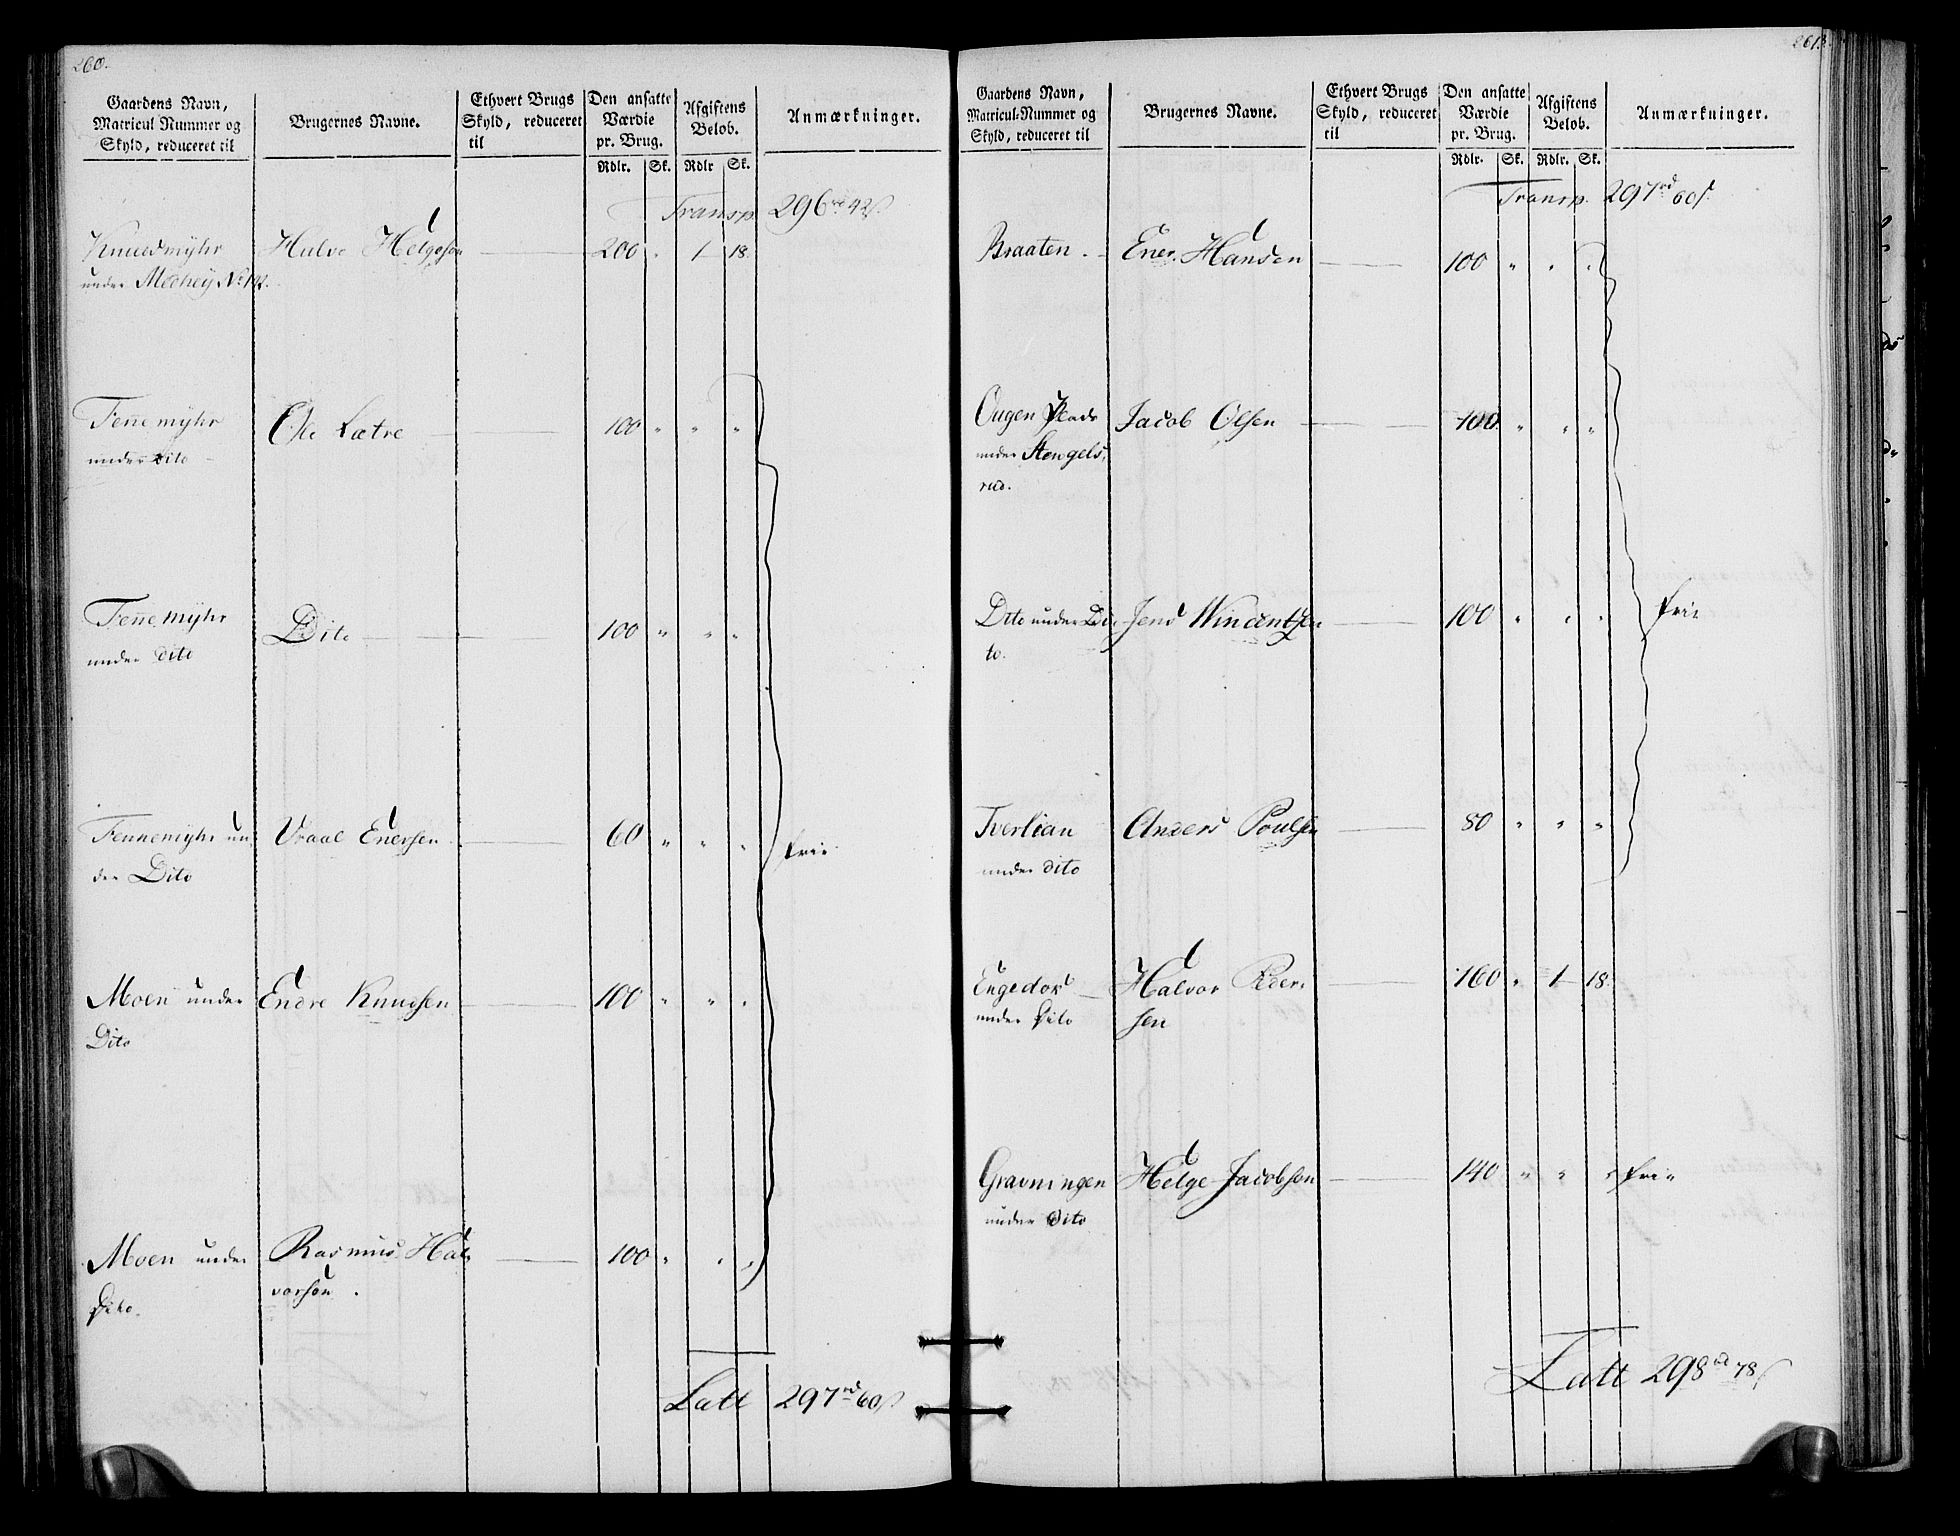 260.
Gaardens Navn,
Matricul Nummer og
Skyld, reduceret til
Brugernes Navne.
Ethvert Brugs
Skyld, reduceret
til
Den ansatte
Værdie
pr. Brug.
Rdlr. Sk.
Afgiftens
Beløb.
Rdlr Sk.
Anmærkninger.
Transp. 296 rd 42 s.
Knudmyhr Halvo Helgeson 200 " 1 18.
under Mechey No 142.
Tennemyhr Ole Lætre 100 " " "
under Dito
Tennemyhr Dito 100 " " "
under dito
Tennemyhr un Vraal Enersen 60 " " " frie
der Dito
Moen under Endre Knudsen 100 " " "
Dito
Moen under Rasmus Hal
Dito. vorsen. 100 " " "
Latt 297 rd 60 s
261.
Gaardens Navn,
Matricul-Nummer og
Skyld, reduceret til
Brugernes Navne.
Ethvert Brugs
Skyld, reduceret
til
Den ansatte
Værdie
pr. Brug.
Rdlr. Sk.
Afgiftens
Beløb.
Rdlr. Sk.
Anmærkninger.
Transp. 297 rd 60 s.
Braaten. Ener Hansen 100 " " "
Ougen Plads Jacob Olsen 100 " " "
under Stengels
rud.
Dito under Di Jens Wincentsen 100 " " " frie
to.
Tverlian Anders Poulsen 80 " " "
under dito
Engedos Halvor Peder 160 " 1 18.
under Dito sen
Gravningen Helge Jacobsen 140 " " " frie
under Dito
Latt 298 rd 78 s